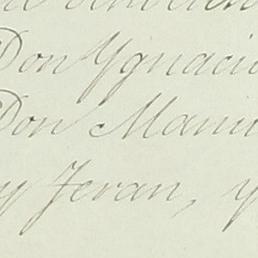 Don Ygnacio
Don Manu
y Jeran, y